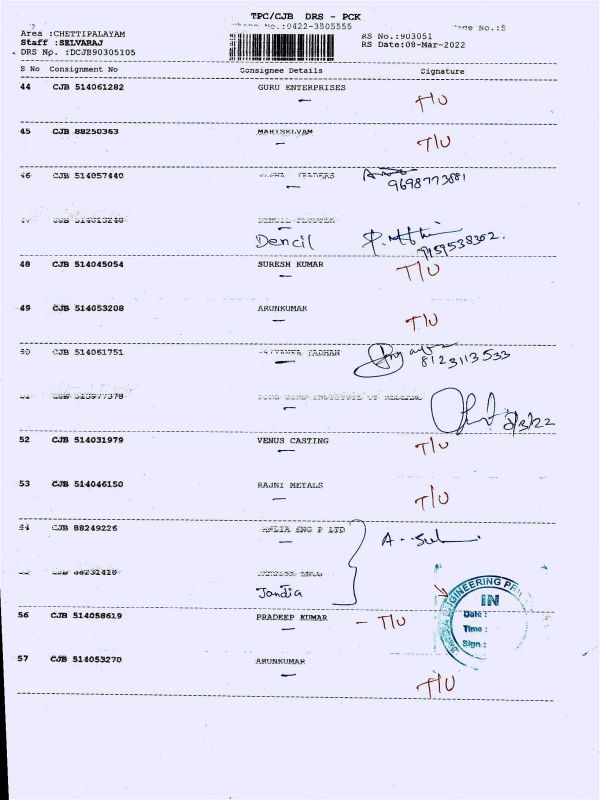 TPC/CJB DRS - PCK
Phone No.:0422-3505555
Page No.:5
Area :CHETTIPALAYAM
Staff :SELVARAJ
DRS No. :DCJB90305105
RS No.:903051
RS Date:08-Mar-2022
S No Consignment No Consignee Details Signature
44 CJB 514061282 GURU ENTERPRISES
T/U
45 CJB 88250363 MARISELVAM
T/U
46 CJB 514057440 TRADERS
9698773881
CJB
Dencil
9159538302.
48 CJB 514045054 SURESH KUMAR
T/U
49 CJB 514053208 ARUNKUMAR
T/U
50 CJB 514061751
8123113533
CJB
8/3/22
52 CJB 514031979 VENUS CASTING
T/U
53 CJB 514046150 RAJNI METALS
T/U
54 CJB 88249226 ENG P LTD
CJB
Jandia
56 CJB 514058619 PRADEEP KUMAR
- T/U
ENGINEERING
IN
Date :
Time :
Sign :
57 CJB 514053270 ARUNKUMAR
T/U